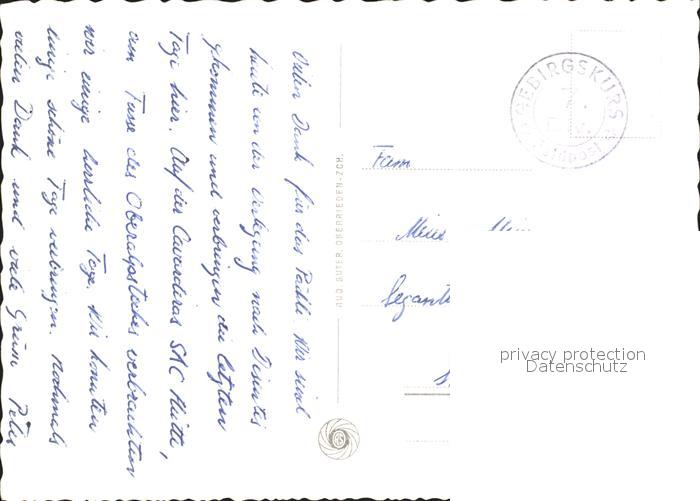 Vielen Dank für das Päckli. Wir sind
heute von der Verlegung nach Disentis
gekommen und verbringen die letzten
Tage hier. Auf der Cavardiras SAC Hütte,
am Fusse des Oberalpstockes verbrachten
wir einige herrliche Tage. Wir konnten
einige schöne Tage verbringen. Nochmals
vielen Dank und viele Grüsse Peter
RUD. SUTER, OBERRIEDEN-ZCH.
GEBIRGSKURS
7.
Feldpost
Fam
Meier
Segant
privacy protection
Datenschutz